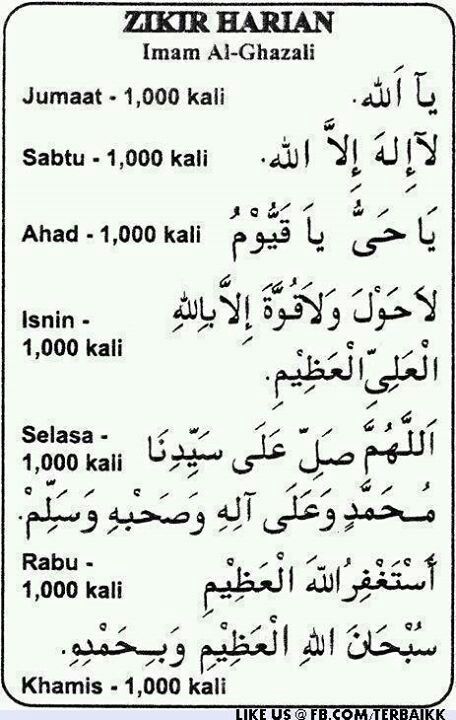 ZIKIR HARIAN
Imam Al-Ghazali
Jumaat - 1,000 kali
يَآ اَلله.
Sabtu - 1,000 kali
لَآإِلهَ إِلاَّ الله.
Ahad - 1,000 kali
يَا حَىُّ يَا قَيُّوْمُ
Isnin -
1,000 kali
لاَحَوْلَ وَلاَقُوَّةَ إِلاَّبِاللهِ
الْعَلِىِّ الْعَظِيْمِ.
Selasa -
1,000 kali
اَللَّهُمَّ صَلِّ عَلَى سَيِّدِنَا
مُـحَمَّدٍ وَعَلَى آلِهِ وَصَحْبِهِ وَسَلِّمْ.
Rabu -
1,000 kali
أَسْتَغْفِرُاللهَ الْعَظِيْمِ
سُبْحَانَ اللهِ الْعَظِيْمِ وَبِـحَمْدِهِ.
Khamis - 1,000 kali
LIKE US @ FB.COM/TERBAIKK